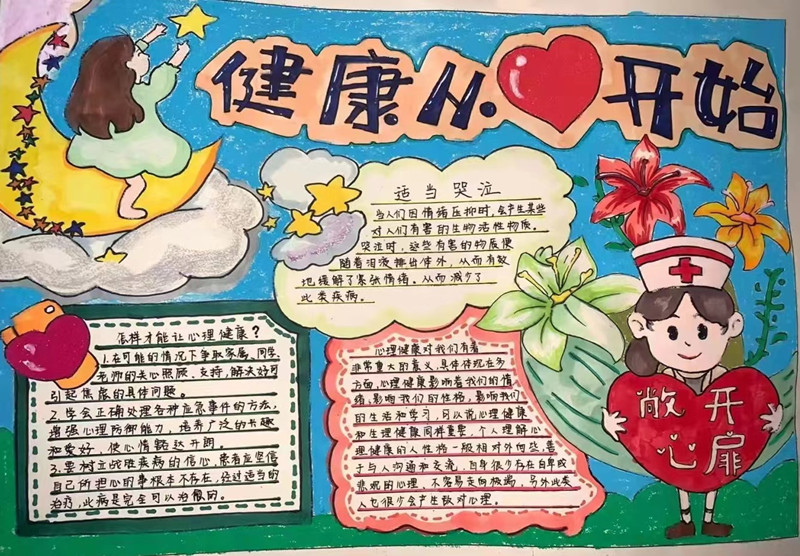 健康从 开始
适当哭泣
当人们因情绪压抑时，会产生某些
对人们有害的生物活性物质。
哭泣时，这些有害的物质便
随着泪液排出体外，从而有效
地缓解了紧张情绪。从而减少了
此类疾病。
怎样才能让心理健康？
1.在可能的情况下争取家属、同学、
老师的关心照顾、支持，解决好可
引起焦虑的具体问题。
2.学会正确处理各种应急事件的方法，
增强心理防御能力，培养广泛的兴趣
和爱好，使心情豁达开朗
3.要树立战胜疾病的信心，患者应坚信
自己所担心的事根本不存在，经过适当的
治疗，此病是完全可以治愈的。
心理健康对我们有着
非常重大的意义，具体体现在多
方面，心理健康影响着我们的情
绪，影响我们的性格，影响我们
的生活和学习，可以说心理健康
和生理健康同样重要，个人理解心
理健康的人性格一般相对外向些，善
于与人沟通和交流，自身很少存在自卑或
悲观的心理，不容易走向极端，另外此类
人也很少会产生敌对心理。
敞开
心扉